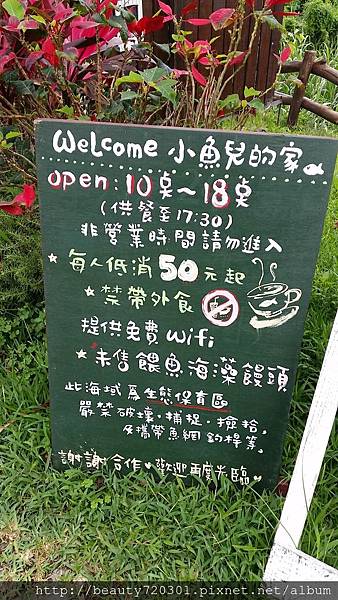 Welcome 小魚兒的家
open:10点~18点
(供餐至17:30)
非營業時間請勿進入
★每人低消50元起
★禁帶外食
提供免費 wifi
★未售餵魚海藻饅頭
此海域為生態保育區
嚴禁破壞、捕捉、撿拾。
及攜帶魚網釣桿等。
謝謝合作 歡迎再度光臨
http://beauty720301.pixnet.net/album